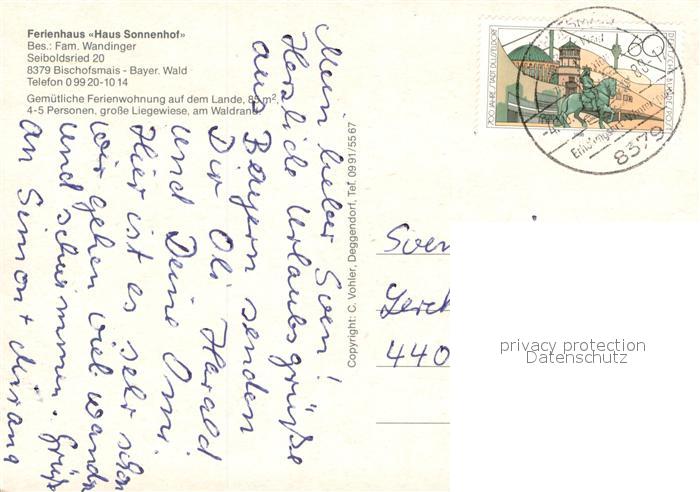 Ferienhaus «Haus Sonnenhof»
Bes.: Fam. Wandinger
Seiboldsried 20
8379 Bischofsmais - Bayer. Wald
Telefon 0 99 20-10 14
Gemütliche Ferienwohnung auf dem Lande, 85 m²,
4-5 Personen, große Liegewiese, am Waldrand.
Mein lieber Sven!
Herzliche Urlaubsgrüße
aus Bayern senden
Dir Oli Harald
und Deine Omi.
Hier ist es sehr schön
wir gehen viel wandern
und schwimmen. Grüße
an Simon +
Copyright: C. Vohler, Deggendorf, Tel. 09 91/55 67
60
DEUTSCHE BUNDESPOST
700 JAHRE STADT DÜSSELDORF
8379
Sven
Lerch
440
privacy protection
Datenschutz